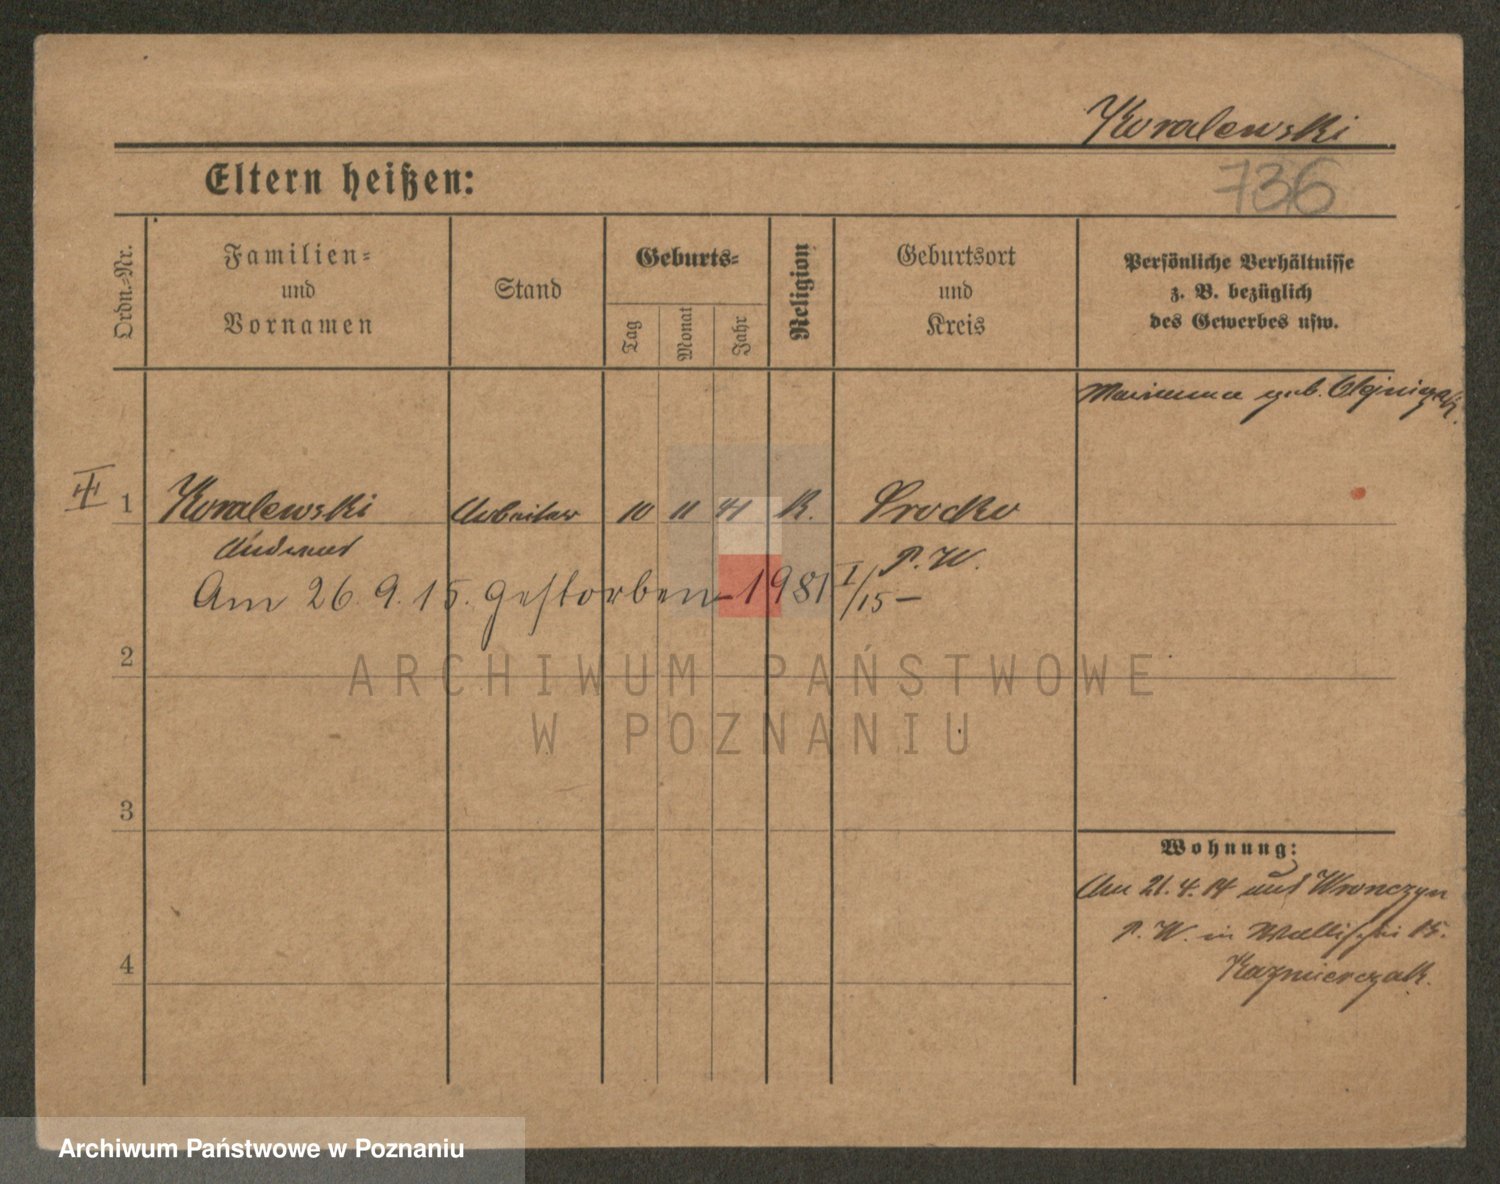 Koralewski
Eltern heißen:
736
Ordn.-Nr.
Familien- und Vornamen
Stand
Geburts-
Tag
Monat
Jahr
Religion
Geburtsort und Kreis
Persönliche Verhältnisse
z. B. bezüglich
des Gewerbes usw.
Marianna geb.
1 Koralewski Arbeiter 10 11 41 K. Srocko
Andreas P. W.
Am 26.9.15. gestorben - 1981 I/15 -
2
ARCHIWUM PAŃSTWOWE
W POZNANIU
3
Wohnung:
Am 21.4.14 aus Wronczyn
P. W. in Wallischei 15.
Kazmierczak.
4
Archiwum Państwowe w Poznaniu